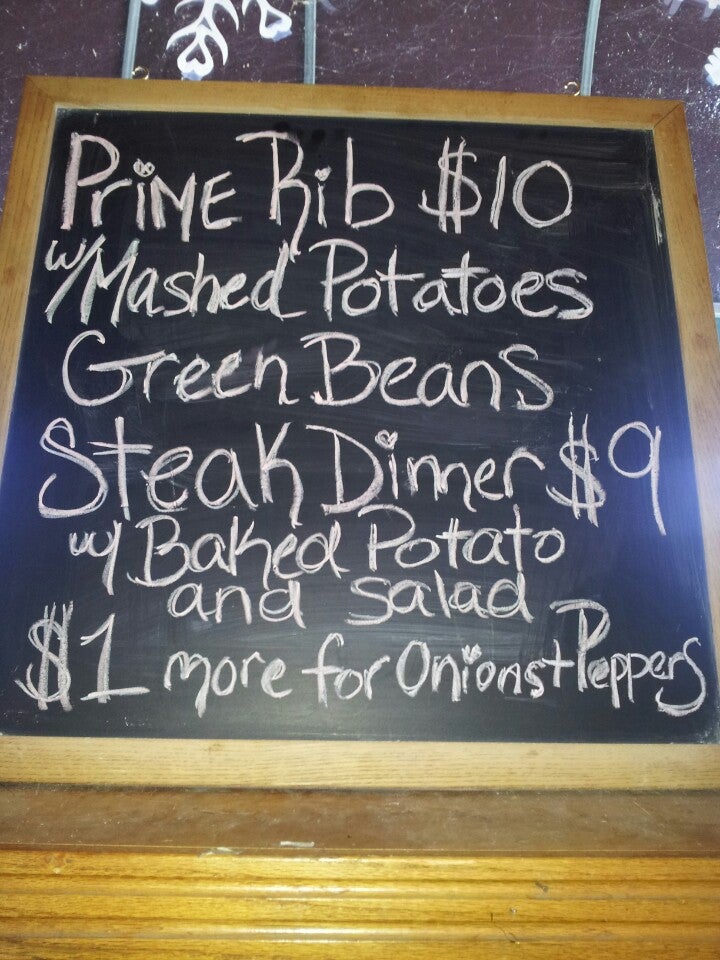 Prime Rib $10
w/Mashed Potatoes
Green Beans
Steak Dinner $9
w/ Baked Potato
and salad
$1 more for Onions+Peppers